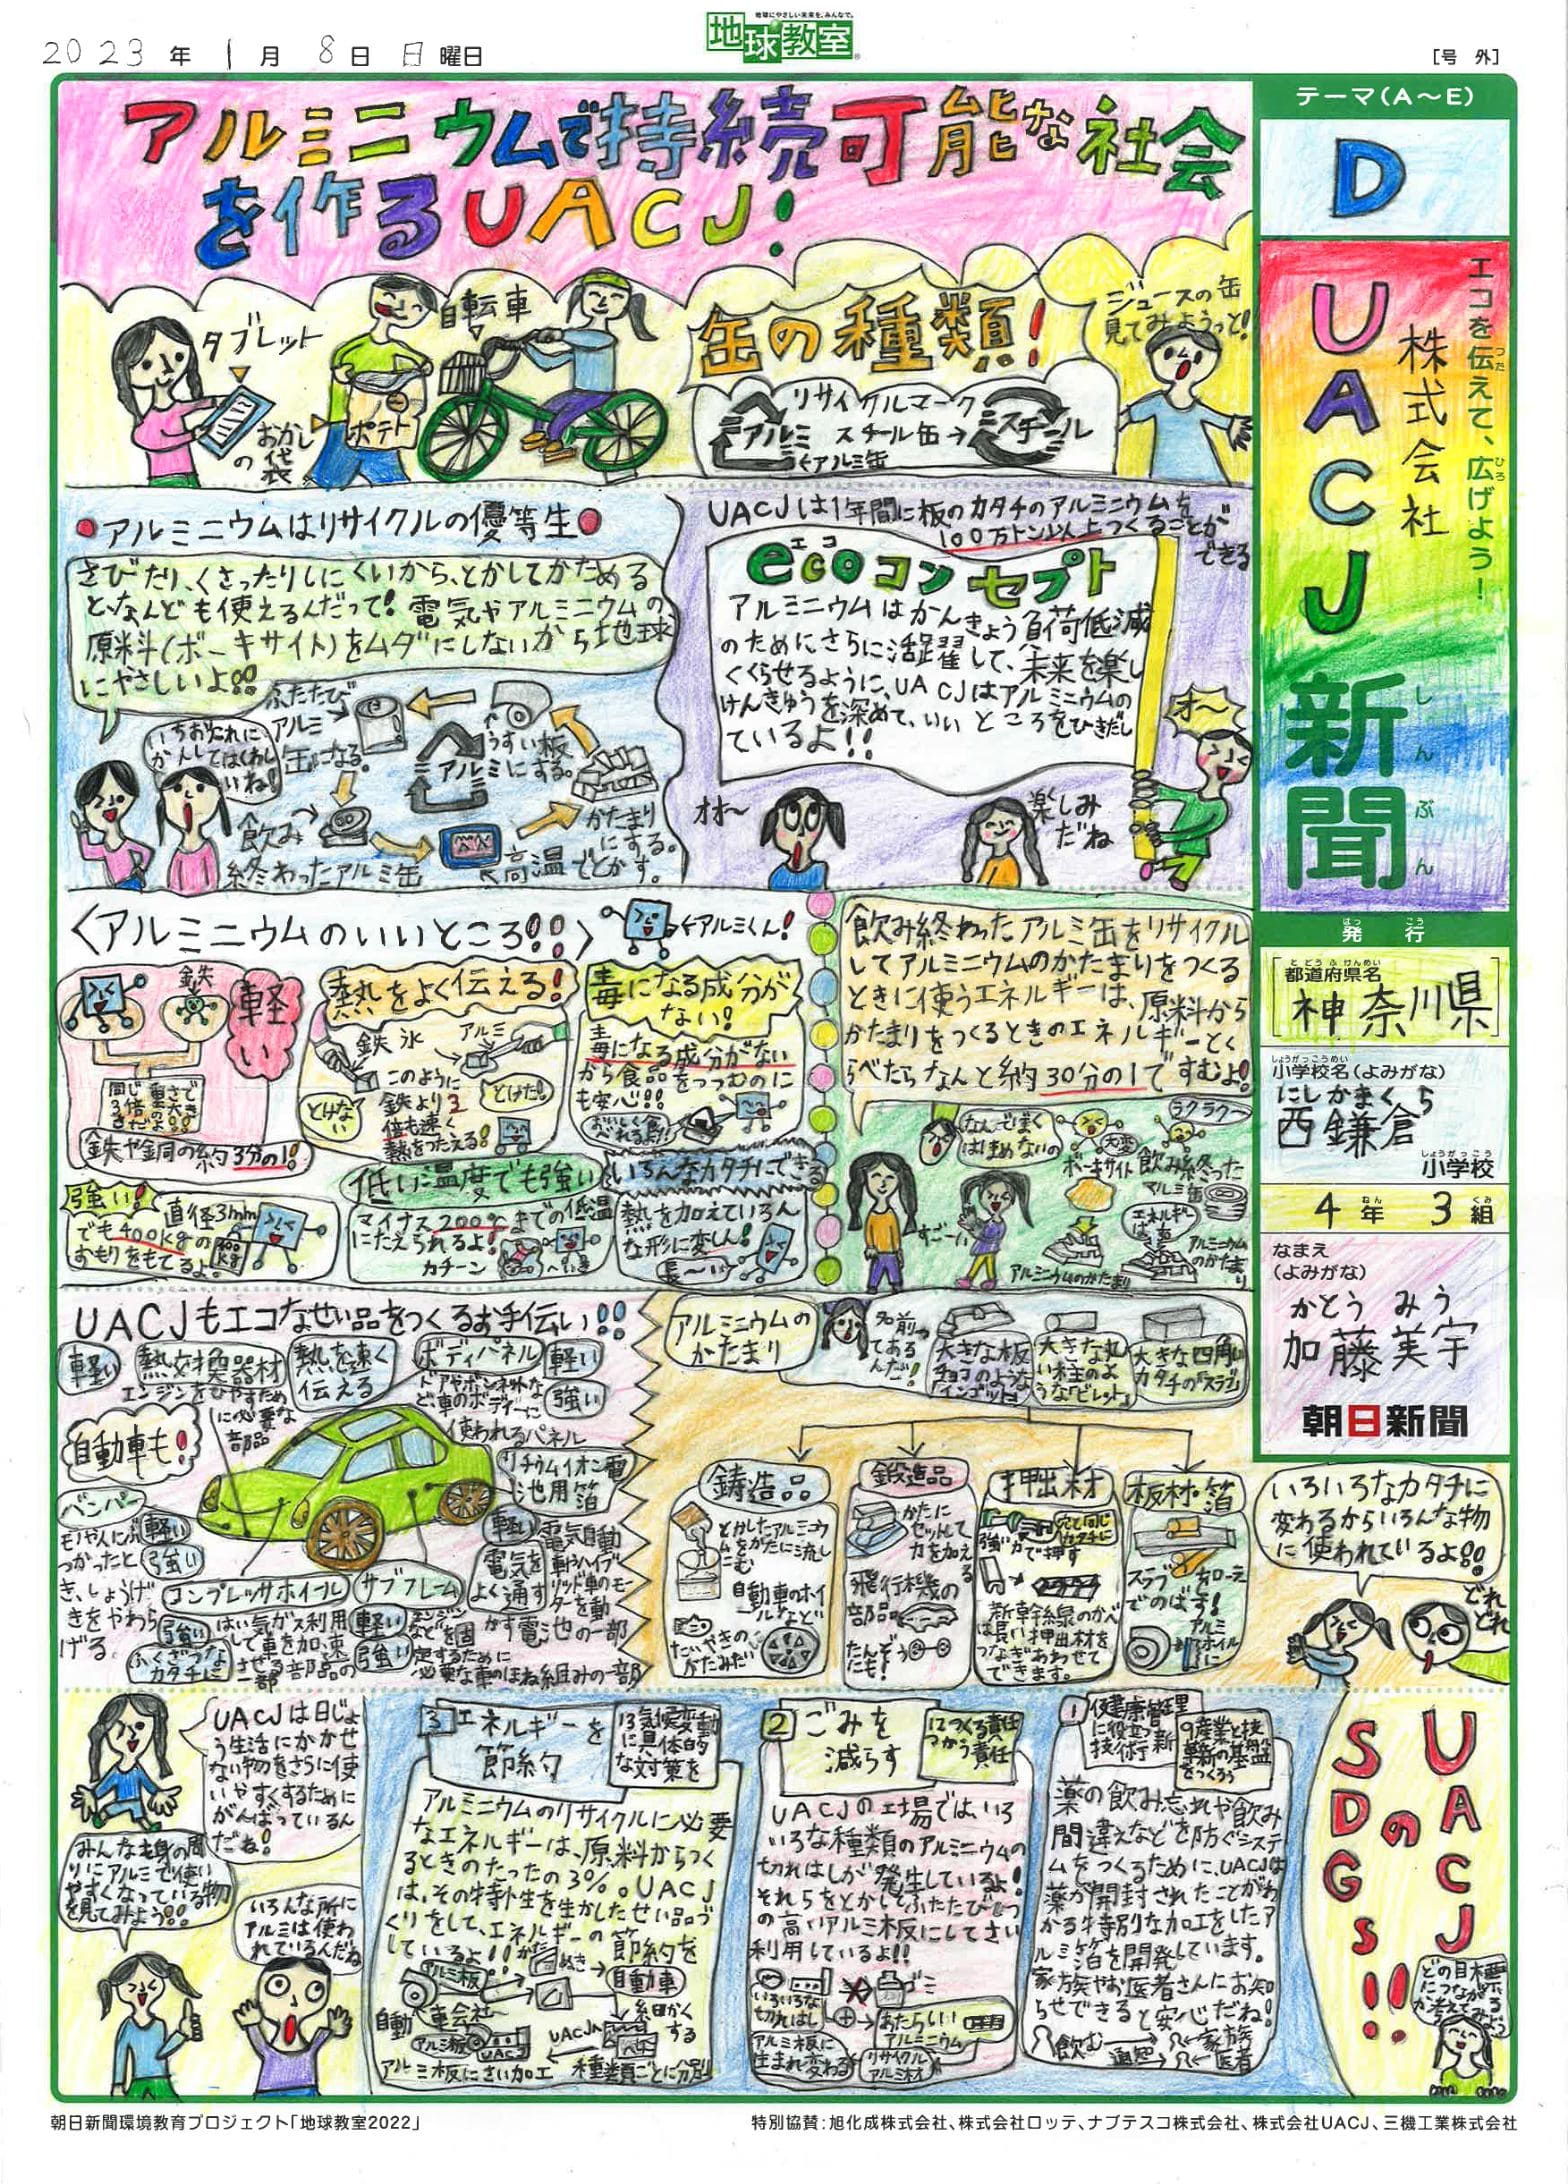 地球にやさしい未来を、みんなで。
地球教室
2023年1月8日日曜日
[号 外]
アルミニウムで持続可能な社会
を作るUACJ!
テーマ(A～E)
D
エコを伝えて、広げよう!
UACJ
株式会社
新聞
しんぶん
発行
はっこう
都道府県名
とどうふけんめい
神奈川県
しょうがっこうめい
小学校名(よみがな)
にしかまくら
西鎌倉
しょうがっこう
小学校
4年3組
なまえ
(よみがな)
かとう みう
加藤美宇
朝日新聞
タブレット
おかしの袋
ポテト
自転車
缶の種類!
リサイクルマーク
アルミ スチール缶→ スチール
←アルミ缶
ジュースの缶
見てみようっと!
●アルミニウムはリサイクルの優等生●
さびたり、くさったりしにくいから、とかしてかためる
と、なんども使えるんだって!電気やアルミニウムの
原料(ボーキサイト)をムダにしないから地球
にやさしいよ!!
ふたたび
アルミ
缶になる。
うすい板
にする。
アルミ
かたまり
にする。
飲み
終わったアルミ缶
高温でとかす。
UACJは1年間に板のカタチのアルミニウムを
100万トン以上つくることが
できる
エコ
ecoコンセプト
アルミニウムはかんきょう負荷低減
のためにさらに活躍して、未来を楽し
くくらせるように、UACJはアルミニウムの
けんきゅうを深めて、いいところをひきだし
ているよ!!
オ～
オオ～
楽しみ
だね
<アルミニウムのいいところ!!>
←アルミくん!
鉄
軽い
同じ重さで
3倍の大き
さだよ!!
鉄や銅の約3分の1!
熱をよく伝える!
鉄 氷
アルミ
このように
鉄より3
倍も速く
熱をつたえる!
とけない
とけた!
毒になる成分が
ない!
毒になる成分がない
から食品をつつむのに
も安心!!
おいしく食
べれるよ!!
強い!
直径3mm
でも400kgの
おもりをもてるよ。
400kg
低い温度でも強い
マイナス200℃までの低温
にたえられるよ!
カチーン
いろんなカタチにできる
熱を加えていろん
な形に変しん!
長～い
飲み終わったアルミ缶をリサイクル
してアルミニウムのかたまりをつくる
ときに使うエネルギーは、原料から
かたまりをつくるときのエネルギーとく
らべたらなんと約30分の1ですむよ!
なんでぼく
はじめないの
大変
ラクラク～
ボーキサイト
飲み終った
アルミ缶
すご～い
アルミニウムのかたまり
アルミニウム
のかたまり
UACJもエコなせい品をつくるお手伝い!!
軽い
熱交換器材
エンジンをひやすため
に必要な
部品
熱を速く
伝える
ボディパネル
軽い
強い
ドアやボンネットな
ど、車のボディーに
使われるパネル
自動車も!
リチウムイオン電
池用箔
バンパー
モノや人にぶ
つかったと
き、しょうげ
きをやわら
げる。
軽い
強い
コンプレッサホイール
サブフレーム
強い
ふくざつな
カタチに
はい気ガス利用
して車を加速
させる部品の
一部
軽い
強い
エンジン
などを固
定するために
必要な車のほね組みの一部
軽い
電気を
よく通す
電気自動
車やハイブ
リッド車のモー
ターを動
かす電池の一部
アルミニウムの
かたまり
名前っ
てあるんだ!
大きな板
チョコのような
「インゴット」
大きな丸
い柱のよ
うな「ビレット」
大きな四角い
カタチの「スラブ」
鋳造品
とかしたアルミニウ
ムをかたに流し
こむ
自動車のホイ
ールなど
たいやきの
かたみたい
鍛造品
かたに
セットして
力を加える
飛行機の
部品
押出材
強い力で押す
穴と同じ
カタチに
新幹線のかべ
は長い押出材を
つなぎあわせて
できます。
板材・箔
スラブを加工
でのばす!
アルミ
ホイル
に
いろいろなカタチに
変わるからいろんな物
に使われているよ!!
どれ
どれ
UACJは日じょ
う生活にかかせ
ない物をさらに使
いやすくするために
がんばっているん
だね!
みんなも身の周
りにアルミで使い
やすくなっている物
を見てみよう!!
いろんな所に
アルミは使わ
れているんだね
3 エネルギーを
節約
13気候変動
に具体的
な対策を
アルミニウムのリサイクルに必要
なエネルギーは、原料からつく
るときのたったの3%。UACJ
は、その特性を生かしたせい品づ
くりをして、エネルギーの節約を
しているよ!!
アルミ板
自動車
自動車会社
細かく
する
UACJへ
アルミ板にさい加工
種類ごとに分別
2 ごみを
減らす
12つくる責任
つかう責任
UACJの工場では、いろ
いろな種類のアルミニウムの
切れはしが発生しているよ!
それらをとかしてふたたびしつ
の高いアルミ板にしてさい
利用しているよ!!
いろいろな
切れはし
ゴミ
あたらしい
アルミニウム
アルミ板に
生まれ変わる
リサイクル
アルミ材
1 健康管理
に役立つ新
技術
9産業と技術
革新の基盤
をつくろう
薬の飲み忘れや飲み
間違えなどを防ぐシステ
ムをつくるために、UACJは
薬が開封されたことがわ
かる特別な加工をしたア
ルミ箔を開発しています。
家族やお医者さんにお知
らせできると安心だね!
飲む→通知→家族
医者
UACJ
の
SDGs!!
どの目標
につながる
か考えてみよう
朝日新聞環境教育プロジェクト「地球教室2022」
特別協賛:旭化成株式会社、株式会社ロッテ、ナブテスコ株式会社、株式会社UACJ、三機工業株式会社